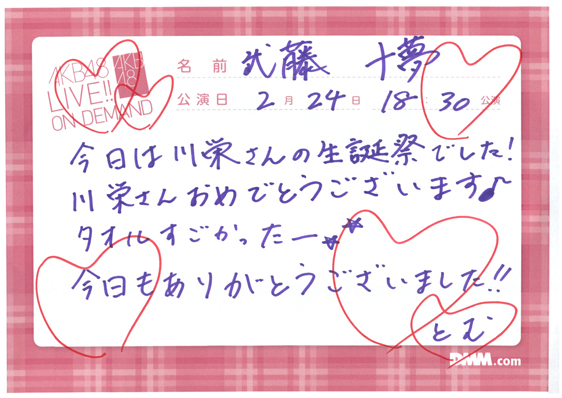 AKB48
LIVE!!
ON DEMAND
AKB
48
名前 武藤 十夢
公演日 2月24日 18:30公演
今日は川栄さんの生誕祭でした!
川栄さんおめでとうございます♪
タオルすごかったー☆★
今日もありがとうございました!!
とむ
DMM.com